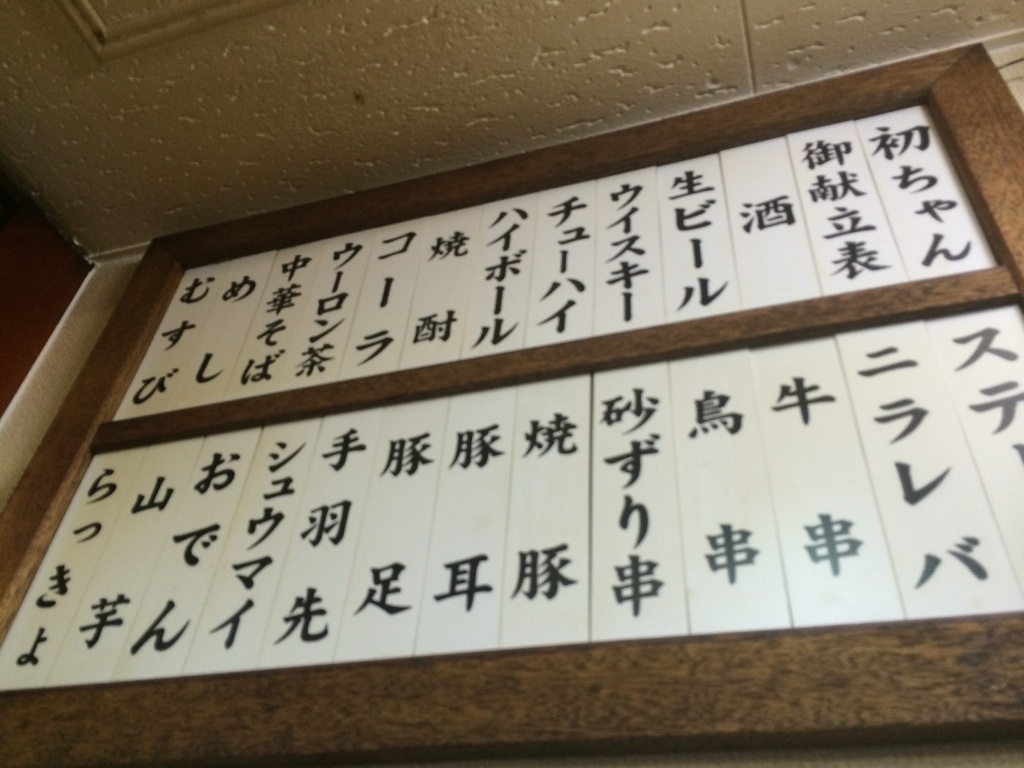 初ちゃん
御献立表
酒
生ビール
ウイスキー
チューハイ
ハイボール
焼酎
コーラ
ウーロン茶
中華そば
めし
むすび
ステ
ニラレバ
牛串
鳥串
砂ずり串
焼豚
豚耳
豚足
手羽先
シュウマイ
おでん
山芋
らっきょ